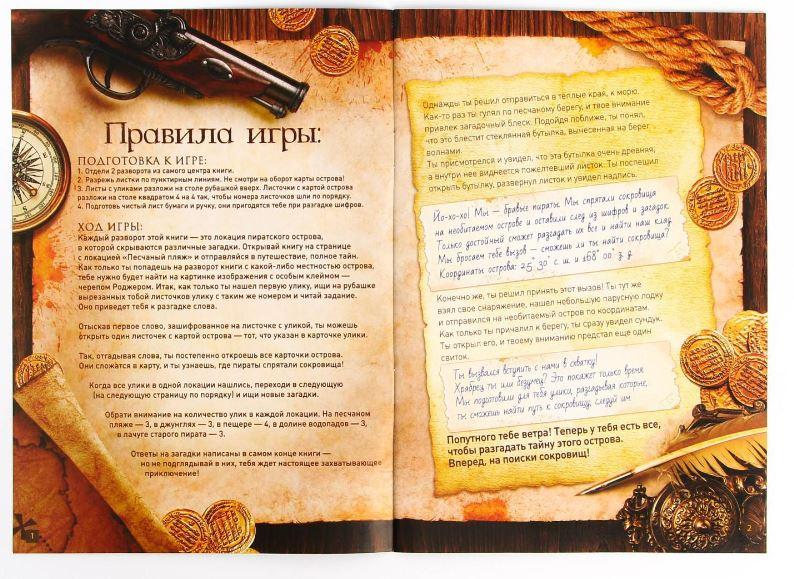 Правила игры:
ПОДГОТОВКА К ИГРЕ:
1. Отдели 2 разворота из самого центра книги.
2. Разрежь листки по пунктирным линиям. Не смотри на оборот карты острова!
3. Листы с уликами разложи на столе рубашкой вверх. Листочки с картой острова
разложи на столе квадратом 4 на 4 так, чтобы номера листочков шли по порядку.
4. Подготовь чистый лист бумаги и ручку, они пригодятся тебе при разгадке шифров.
ХОД ИГРЫ:
Каждый разворот этой книги — это локация пиратского острова,
в которой скрываются различные загадки. Открывай книгу на странице
с локацией «Песчаный пляж» и отправляйся в путешествие, полное тайн.
Как только ты попадешь на разворот книги с какой-либо местностью острова,
тебе нужно будет найти на картинке изображения с особым клеймом —
черепом Роджером. Итак, как только ты нашел первую улику, ищи на рубашке
вырезанных тобой листочков улику с таким же номером и читай задание.
Оно приведет тебя к разгадке слова.
Отыскав первое слово, зашифрованное на листочке с уликой, ты можешь
открыть один листочек с картой острова — тот, что указан в карточке улики.
Так, отгадывая слова, ты постепенно откроешь все карточки острова.
Они сложатся в карту, и ты узнаешь, где пираты спрятали сокровища!
Когда все улики в одной локации нашлись, переходи в следующую
(на следующую страницу по порядку) и ищи новые загадки.
Обрати внимание на количество улик в каждой локации. На песчаном
пляже — 3, в джунглях — 3, в пещере — 4, в долине водопадов — 3,
в лачуге старого пирата — 3.
Ответы на загадки написаны в самом конце книги —
но не подглядывай в них, тебя ждет настоящее захватывающее
приключение!
1
Однажды ты решил отправиться в тёплые края, к морю.
Как-то раз ты гулял по песчаному берегу, и твое внимание
привлек загадочный блеск. Подойдя поближе, ты понял,
что это блестит стеклянная бутылка, вынесенная на берег
волнами.
Ты присмотрелся и увидел, что эта бутылка очень древняя,
а внутри нее виднеется пожелтевший листок. Ты поспешил
открыть бутылку, развернул листок и увидел надпись.
Йо-хо-хо! Мы — бравые пираты. Мы спрятали сокровища
на необитаемом острове и оставили след из шифров и загадок.
Только достойный сможет разгадать их все и найти наш клад.
Мы бросаем тебе вызов — сможешь ли ты найти сокровища?
Координаты острова: 25° 30' с. ш. и 168° 00' з. д.
Конечно же, ты решил принять этот вызов! Ты тут же
взял свое снаряжение, нашел небольшую парусную лодку
и отправился на необитаемый остров по координатам.
Как только ты причалил к берегу, ты сразу увидел сундук.
Ты открыл его, и твоему вниманию предстал еще один
свиток.
Ты вызвался вступить с нами в схватку!
Храбрец ты или безумец? Это покажет только время.
Мы подготовили для тебя улики, разгадывая которые,
ты сможешь найти путь к сокровищу, следуй им.
Попутного тебе ветра! Теперь у тебя есть все,
чтобы разгадать тайну этого острова.
Вперед, на поиски сокровищ!
2